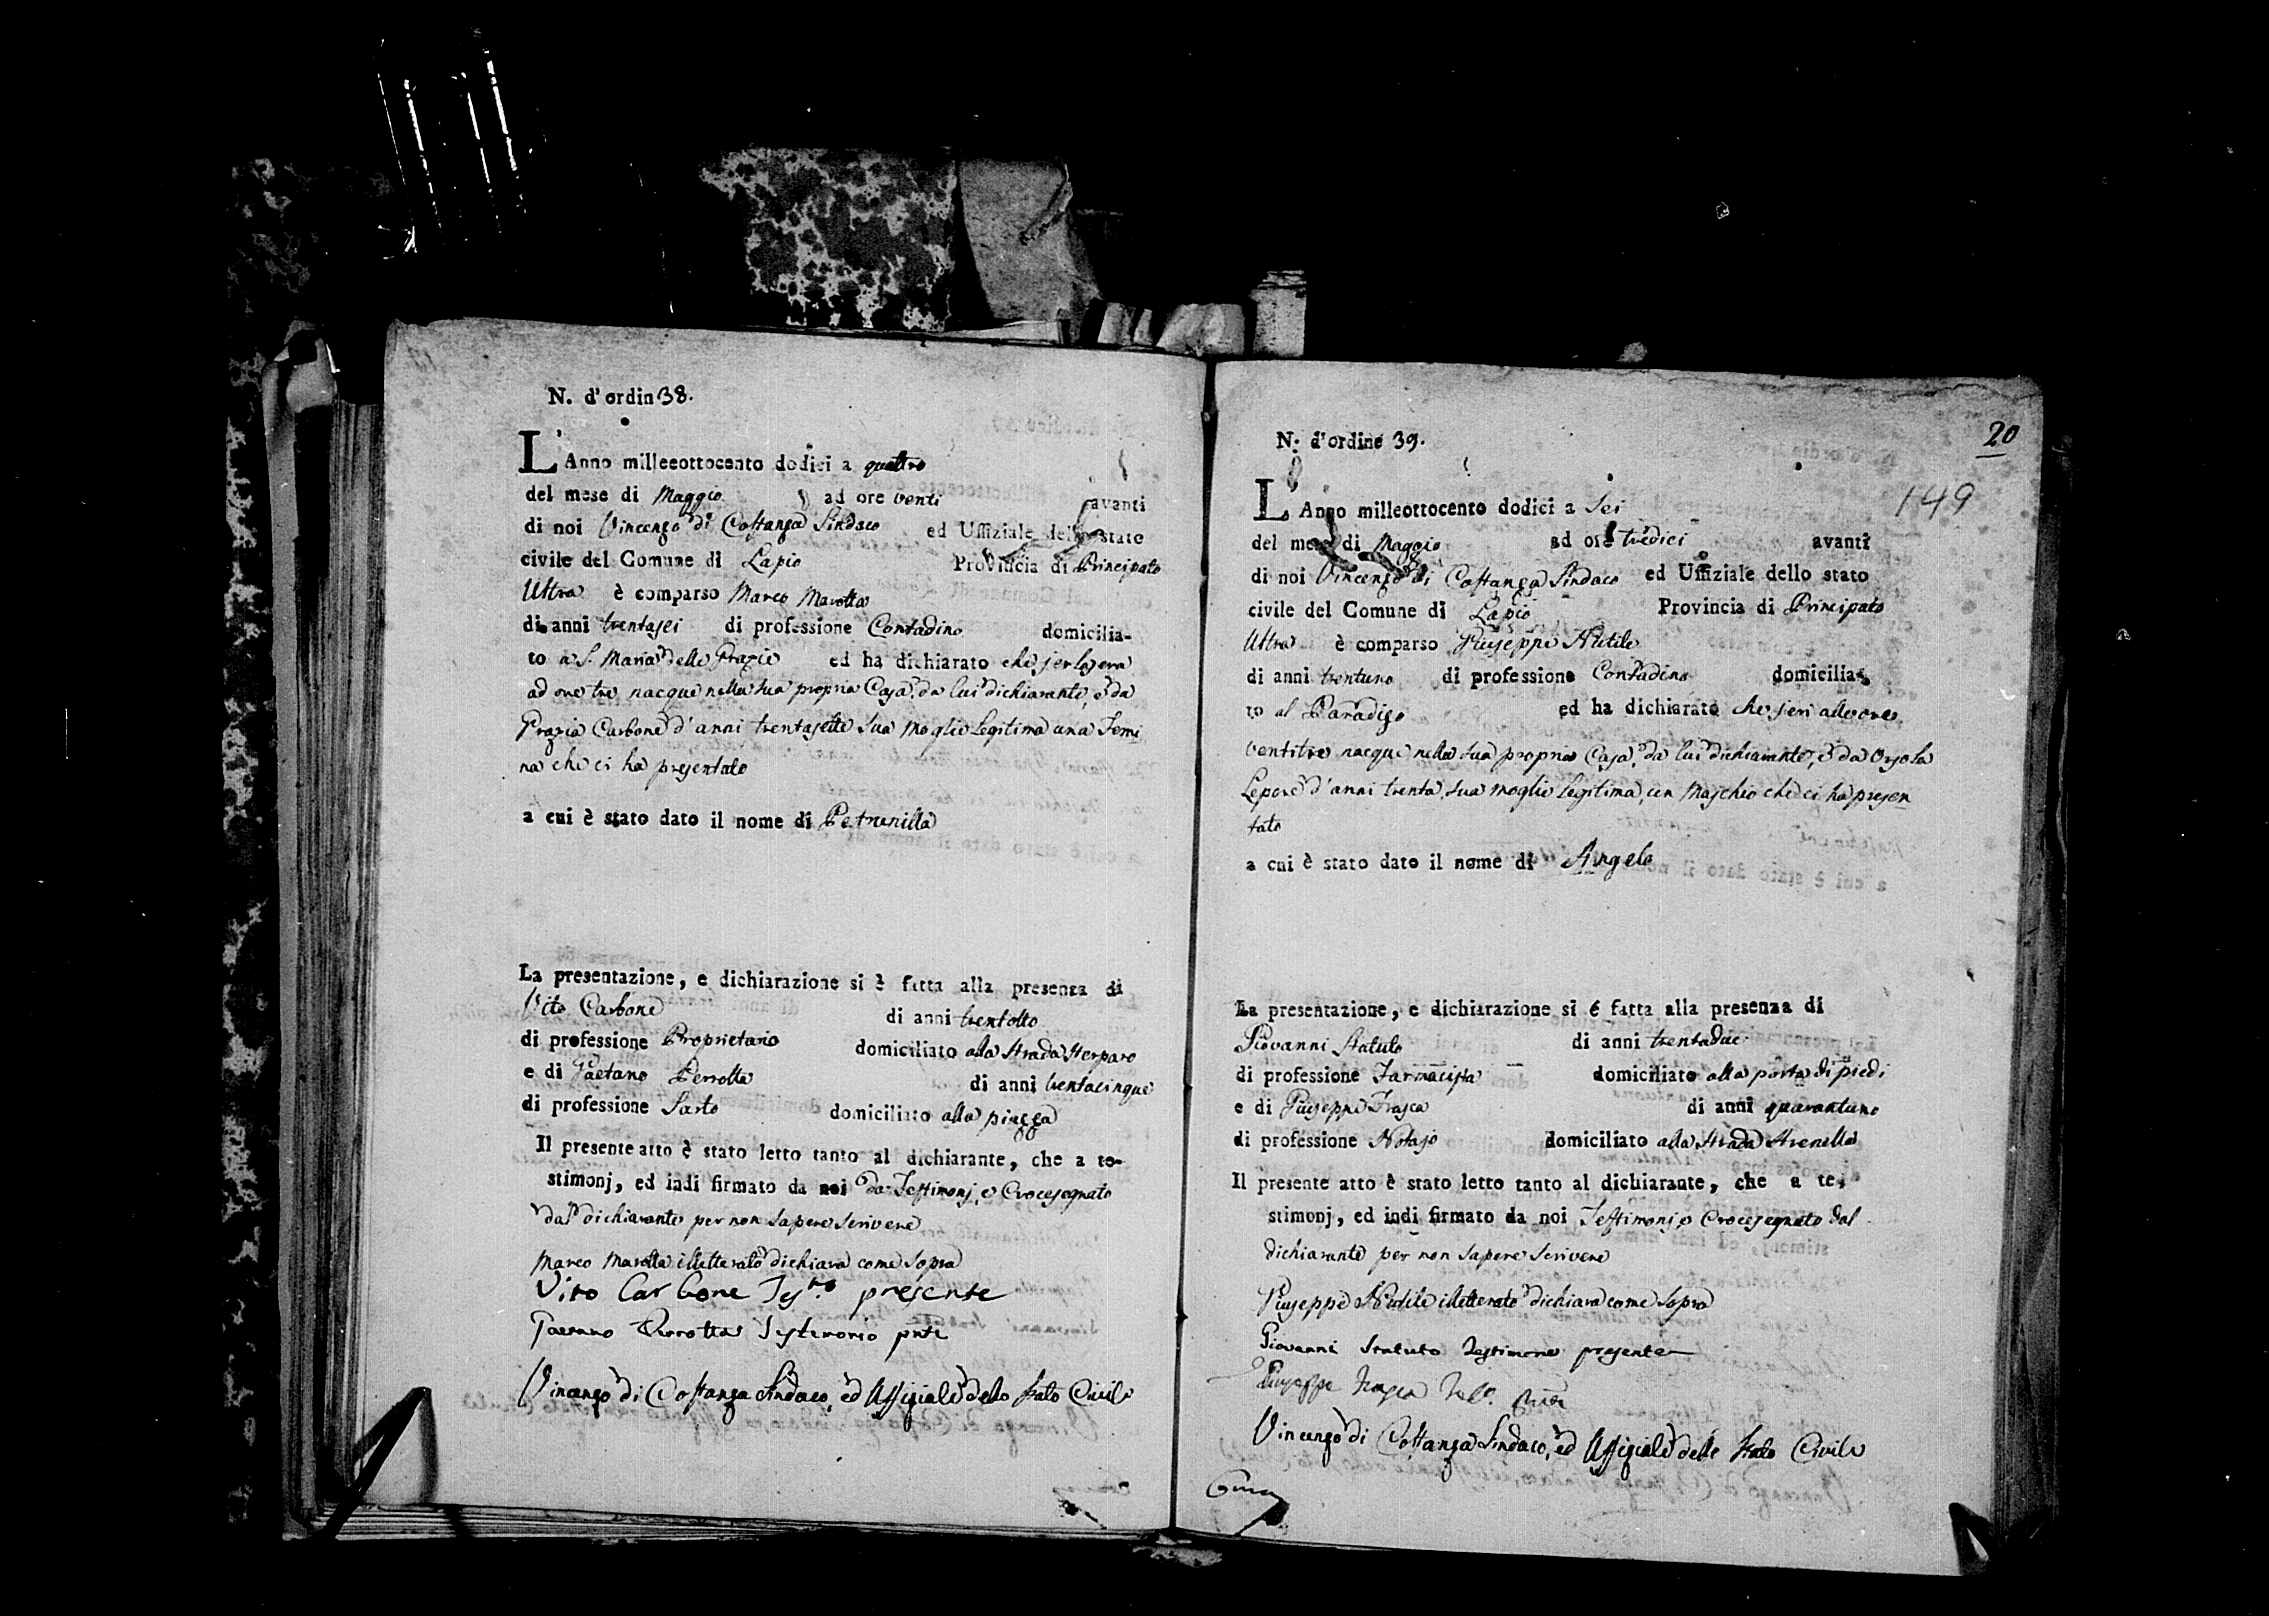 N. d'ordin 38.
L'Anno milleeottocento dodici a quattro
del mese di Maggio ad ore venti avanti
di noi Vincenzo di Costanza Sindaco ed Uffiziale dello stato
civile del Comune di Lapio Provincia di Principato
Ultra è comparso Marco Marotta
di anni trentasei di professione Contadino domicilia-
to a S. Maria delle Grazie ed ha dichiarato che jer la sera
ad ore tre nacque nella sua propria Casa, da lui dichiarante, e da
Grazia Carbone d'anni trentasette sua moglie legitima una Femi
na che ci ha presentato
a cui è stato dato il nome di Petronilla
La presentazione, e dichiarazione si è fatta alla presenza di
Vito Carbone di anni trentotto
di professione Proprietario domiciliato alla Strada Sterparo
e di Gaetano Perrotta di anni trentacinque
di professione Sarto domiciliato alla piazza
Il presente atto è stato letto tanto al dichiarante, che a te-
stimonj, ed indi firmato da noi da Testimonj, e Crocesegnato
dal dichiarante per non sapere scrivere
Marco Marotta illetterato dichiara come sopra
Vito Carbone Tesmo presente
Gaetano Perrotta Testimonio pnte
Vincenzo di Costanza Sindaco, ed Uffiziale dello Stato Civile
20
149
N. d'ordine 39.
L'Anno milleottocento dodici a Sei
del mese di Maggio ad ore tredici avanti
di noi Vincenzo di Costanza Sindaco ed Uffiziale dello stato
civile del Comune di Lapio Provincia di Principato
Ultra è comparso Giuseppe
di anni trentuno di professione Contadino domicilia-
to al Paradiso ed ha dichiarato che jeri alle ore
ventitre nacque nella sua propria Casa, da lui dichiarante, e da Orsola
Lepore d'anni trenta, sua moglie legitima, un Maschio che ci ha presen
tato
a cui è stato dato il nome di Angelo
La presentazione, e dichiarazione si è fatta alla presenza di
Giovanni Statuto di anni trentadue
di professione Farmacista domiciliato alla porta di piedi
e di Giuseppe Frasca di anni quarantuno
di professione Notajo domiciliato alla Strada Arenella
Il presente atto è stato letto tanto al dichiarante, che a te-
stimonj, ed indi firmato da noi Testimonj e Crocesegnato dal
dichiarante per non sapere scrivere
Giuseppe illetterato dichiara come sopra
Giovanni Statuto Testimone presente
Giuseppe Frasca
Vincenzo di Costanza Sindaco, ed Uffiziale dello Stato Civile